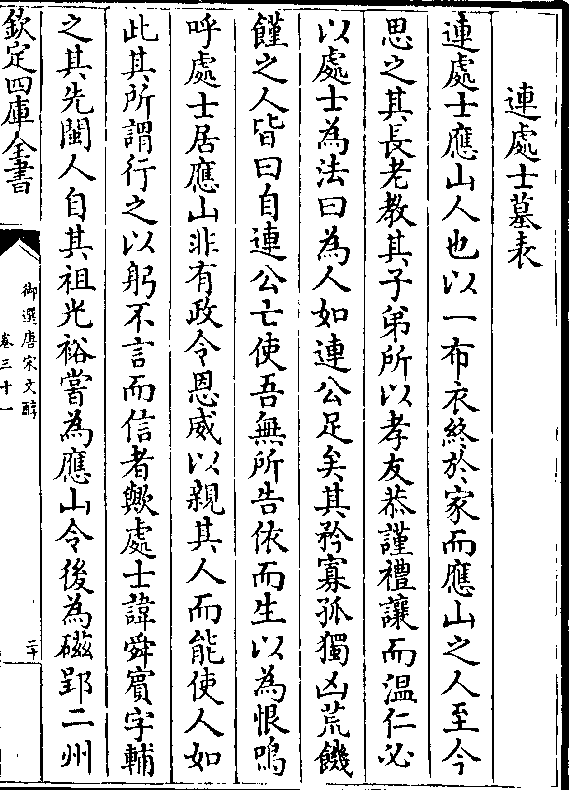 連處士墓表
連處士應山人也以一布衣終於家而應山之人至今
思之其長老教其子弟所以孝友恭謹禮讓而温仁必
以處士為法曰為人如連公足矣其矜寡孤獨凶荒饑
饉之人皆曰自連公亡使吾無所告依而生以為恨嗚
呼處士居應山非有政令恩威以親其人而能使人如
此其所謂行之以躬不言而信者歟處士諱舜賓字輔
之其先閩人自其祖光裕嘗為應山令後為磁郢二州
欽定四庫全書
御選唐宋文醇
卷三十一